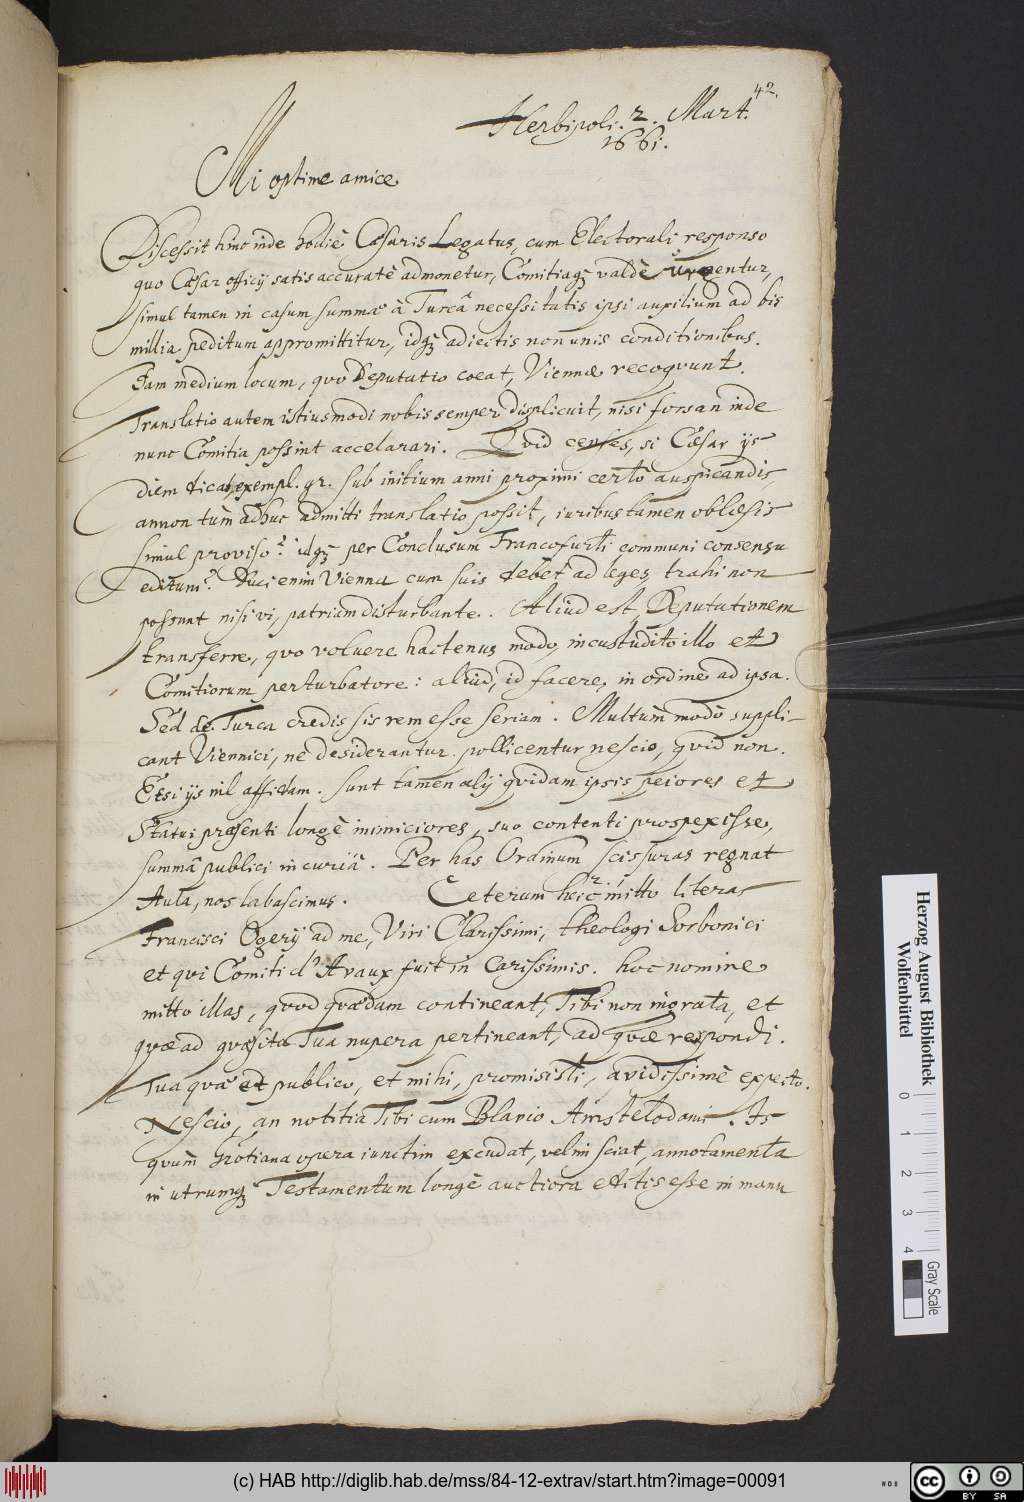 42.
Herbipoli. 2. Mart.
1661.
Mi optime amice
Discessit hinc inde hodiè Cæsaris Legatus, cum Electorali responso
quo Cæsar officij satis accuratè admonetur, Comitiaq; valdè urgentur,
simul tamen in casum summæ à Turcâ necessitatis ipsi auxilium ad bis
millia peditum appromittitur, idq; adiectis non unis conditionibus.
Jam medium locum, quo Deputatio coeat, Viennæ recoquunt.
Translatio autem istiusmodi nobis semper displicuit, nisi forsan inde
nunc Comitia possint accelarari. Quid censes, si Cæsar ijs
diem dicat exempl. gr. sub initium anni proximi certò auspicandis,
annon tùm adhuc admitti translatio possit, iuribus tamen oblæsis
simul proviso? idq; per Conclusum Francofurti communi consensu
editum? Duci enim Vienna cum suis debet ad leges, trahi non
possunt nisi vi, patriam disturbante. Aliud est Deputationem
transferre, quo voluere hactenus modo, incustudito illo et
Comitiorum perturbatore: aliud, id facere, in ordine ad ipsa.
Sed de Turca credis sis rem esse seriam. Multùm modò suppli-
cant Viennici, ne desiderantur. pollicentur nescio, quid non.
Etsi ijs nil affidam. sunt tamen alij quidam ipsis peiores et
Statui præsenti longè inimiciores, suo contenti prospexisse,
summâ publici incuriâ. Per has Ordinum scissuras regnat
Aula, nos labascimus. Ceterum heic mitto literas
Francisci Ogerij ad me, Viri Clarissimi, theologi Sorbonici
et qui Comiti d'Avaux fuit in Carissimis. hoc nomine
mitto illas, quod quædam contineant, Tibi non ingrata, et
quæ ad quæsita Tua nupera pertineant, ad quæ respondi.
Tua quæ et publico, et mihi, promisisti, avidissimè expecto.
Nescio, an notitia Tibi cum Blavio Amstelodami. Is
quùm Grotiana opera iunctim excudat, velim sciat, annotamenta
in utrumq; Testamentum longè auctiora editis esse in manu
Herzog August Bibliothek
Wolfenbüttel
0 1 2 3 4
Gray Scale
(c) HAB http://diglib.hab.de/mss/84-12-extrav/start.htm?image=00091
cc BY SA